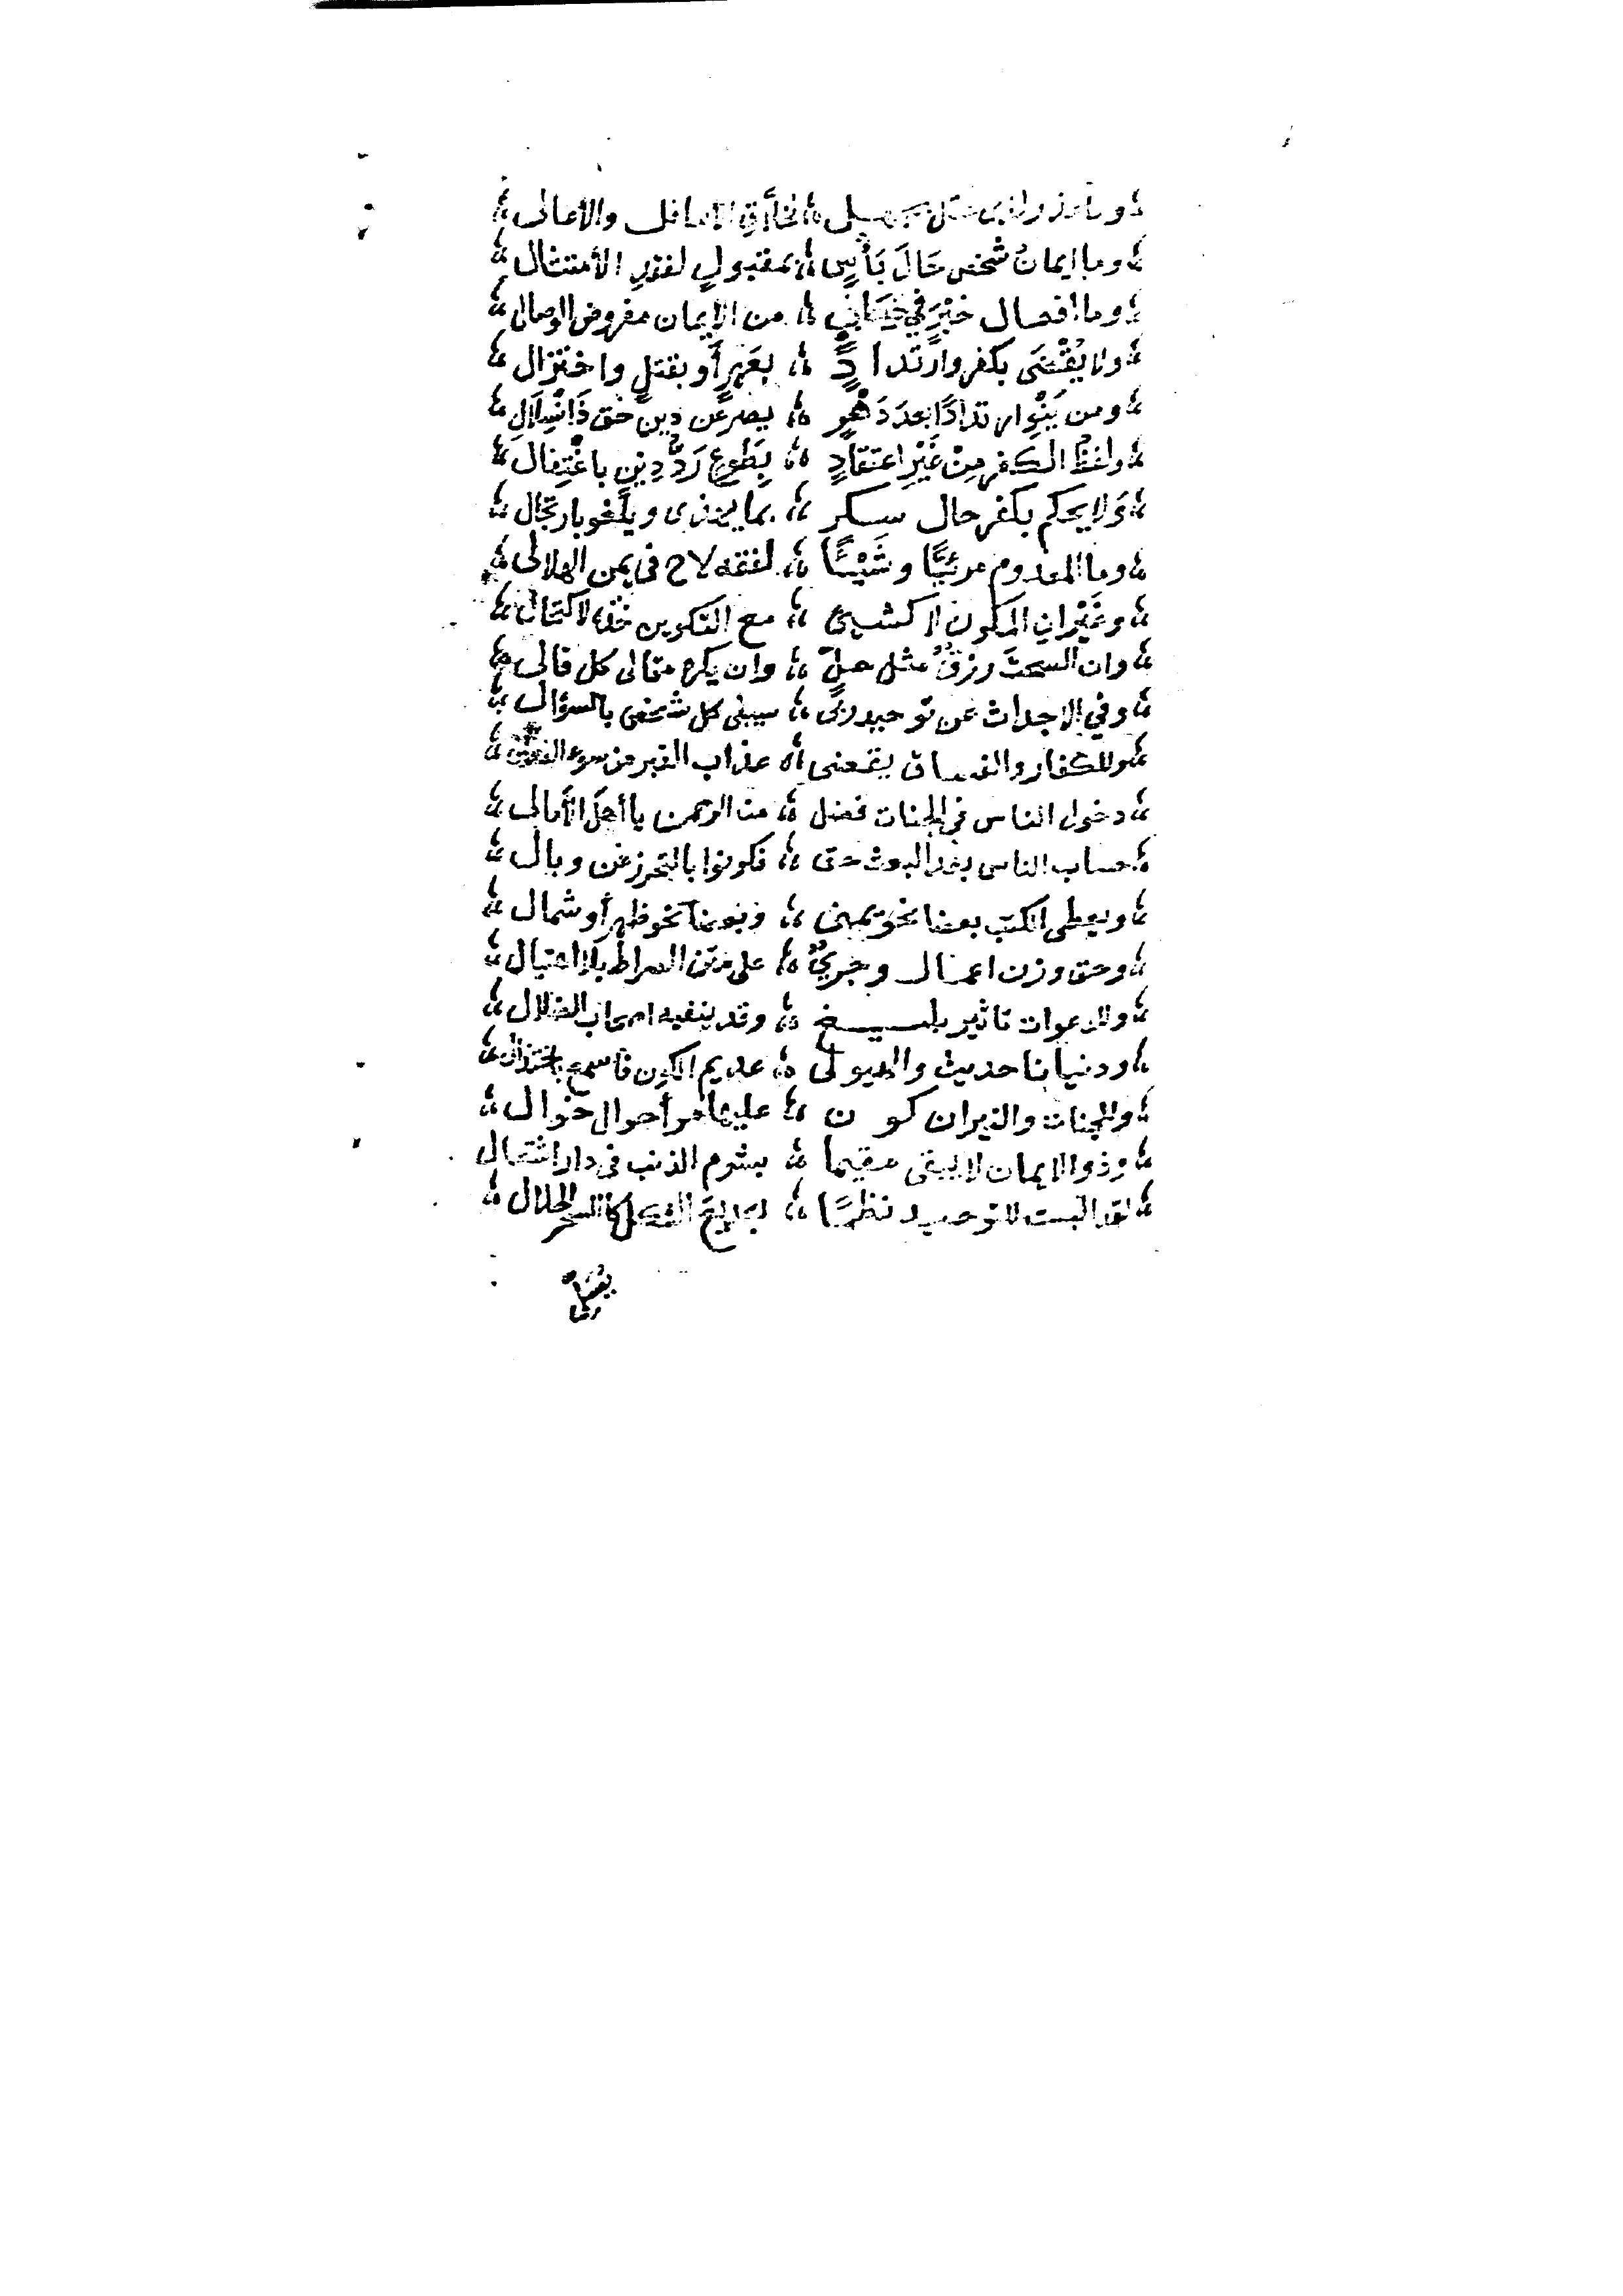 وما عذر لذى عقل بجهل ؛ بخلاق الاسافل والأعالى
وما ايمانُ شخص حَالَ بَأْسٍ ؛ بمقبولٍ لفقدِ الأمتثال
وما افعال خَيْرٍ فى حِسَابٍ ؛ من الإيمان مفروض الوصال
ولا يُقْضَى بكفر وارتدادٍ ؛ بعَهرٍ أو بقتلٍ واختزال
ومن يَنْوِ ارتدادًا بعدَ دَهْرٍ ؛ يصر عن دين حق ذَا نْسِلَالِ
ولفظُ الكفر مِنْ غَيْرِ اعتقادٍ ؛ بِطَوعٍ رَدُّ دِينٍ باغْتِفال
وَلا يحكم بكفر حال سكر ؛ بما يهذى ويلغو بارتجال
وما المعدوم مرئيًّا وشَيْئًا ؛ لفقه لاح فى يمن الهلالى
وغَيْرانِ المكون لا كشيئ ؛ مع التكوين خذه لاكتحال
وان السحتَ رزقٌ مثل حلٍّ ؛ وان يكره مقالى كل قالى
وفي الاجداث عن توحيد ربى ؛ سيبلى كل شخص بالسؤال
وللكفار والفساق يقضى ؛ عذاب القبر من سوء الفعال
دخول الناس فى الجنات فضل ؛ من الرحمن يا أهل الأمالى
حساب الناس بعد البعث حق ؛ فكونوا بالتحرز عن وبال
ويعطى الكتب بعضا نحو يمنى ؛ وبعضا نحو ظهر أو شمال
وحق وزن اعمال وجرىٌ ؛ على متن الصراط بلا اهتبال
وللدعوات تاثير بليغ ؛ وقد ينفيه اصحاب الضلال
ودنيانا حديث والهيولى ؛ عديم الكون فاسمع باجتذال
وللجنات والنيران كون ؛ عليها مر أحوال خوال
وذو الايمان لا يبقى مقيما ؛ بشوم الذنب فى دار اشتعال
لقد البست للتوحيد نظمًا ؛ بديع الشكل كالسحر الحلال